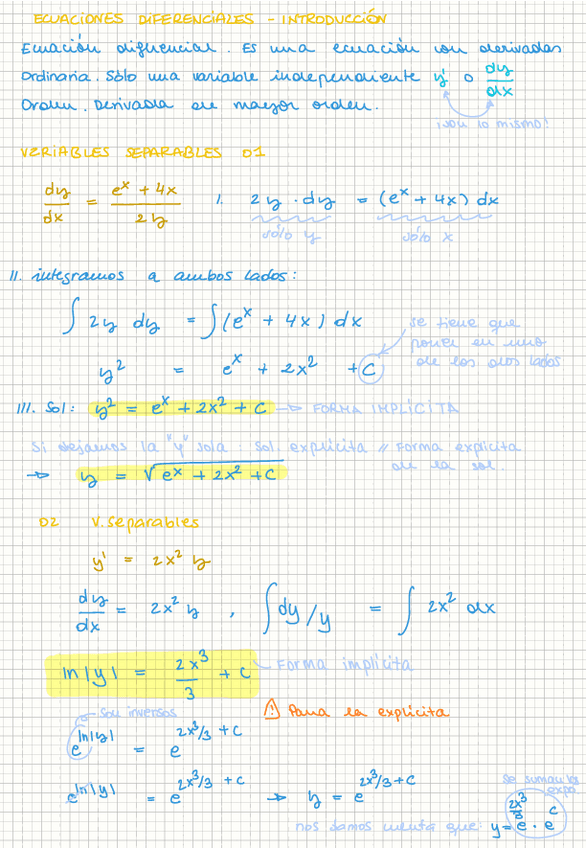 ECUACIONES DIFERENCIALES - INTRODUCCIÓN
Ecuación diferencial. Es una ecuación con derivadas
Ordinaria. Sólo una variable independiente y' o dy/dx
Orden. Derivada de mayor orden.
¡son lo mismo!
VARIABLES SEPARABLES 01
dy/dx = (e^x + 4x)/2y   1. 2y · dy = (e^x + 4x) dx
sólo y   sólo x
II. integramos a ambos lados:
∫ 2y dy = ∫(e^x + 4x) dx
y² = e^x + 2x² + C
se tiene que
poner en uno
de los dos lados
III. Sol: y² = e^x + 2x² + C → FORMA IMPLÍCITA
Si dejamos la "y" sola Sol. explícita // Forma explícita
de la sol.
→ y = √(e^x + 2x² + C)
02 V. Separables
y' = 2x² y
dy/dx = 2x² y , ∫dy/y = ∫ 2x² dx
ln|y| = 2x³/3 + C Forma implícita
son inversos
! Para la explícita
e^(ln|y|) = e^(2x³/3 + C)
e^(ln|y|) = e^(2x³/3 + C) → y = e^(2x³/3 + C)
se suman los
expo
nos damos cuenta que: y = e^(2x³/3) · e^C